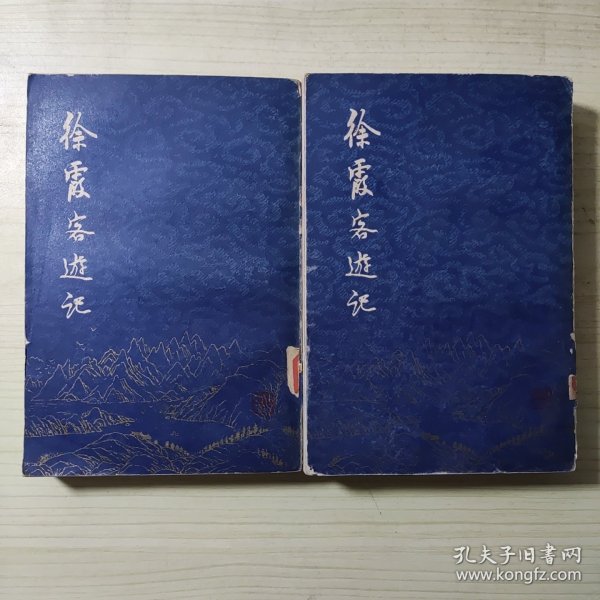 徐霞客遊记
徐霞客遊记
孔夫子旧书网
www.kongfz.com